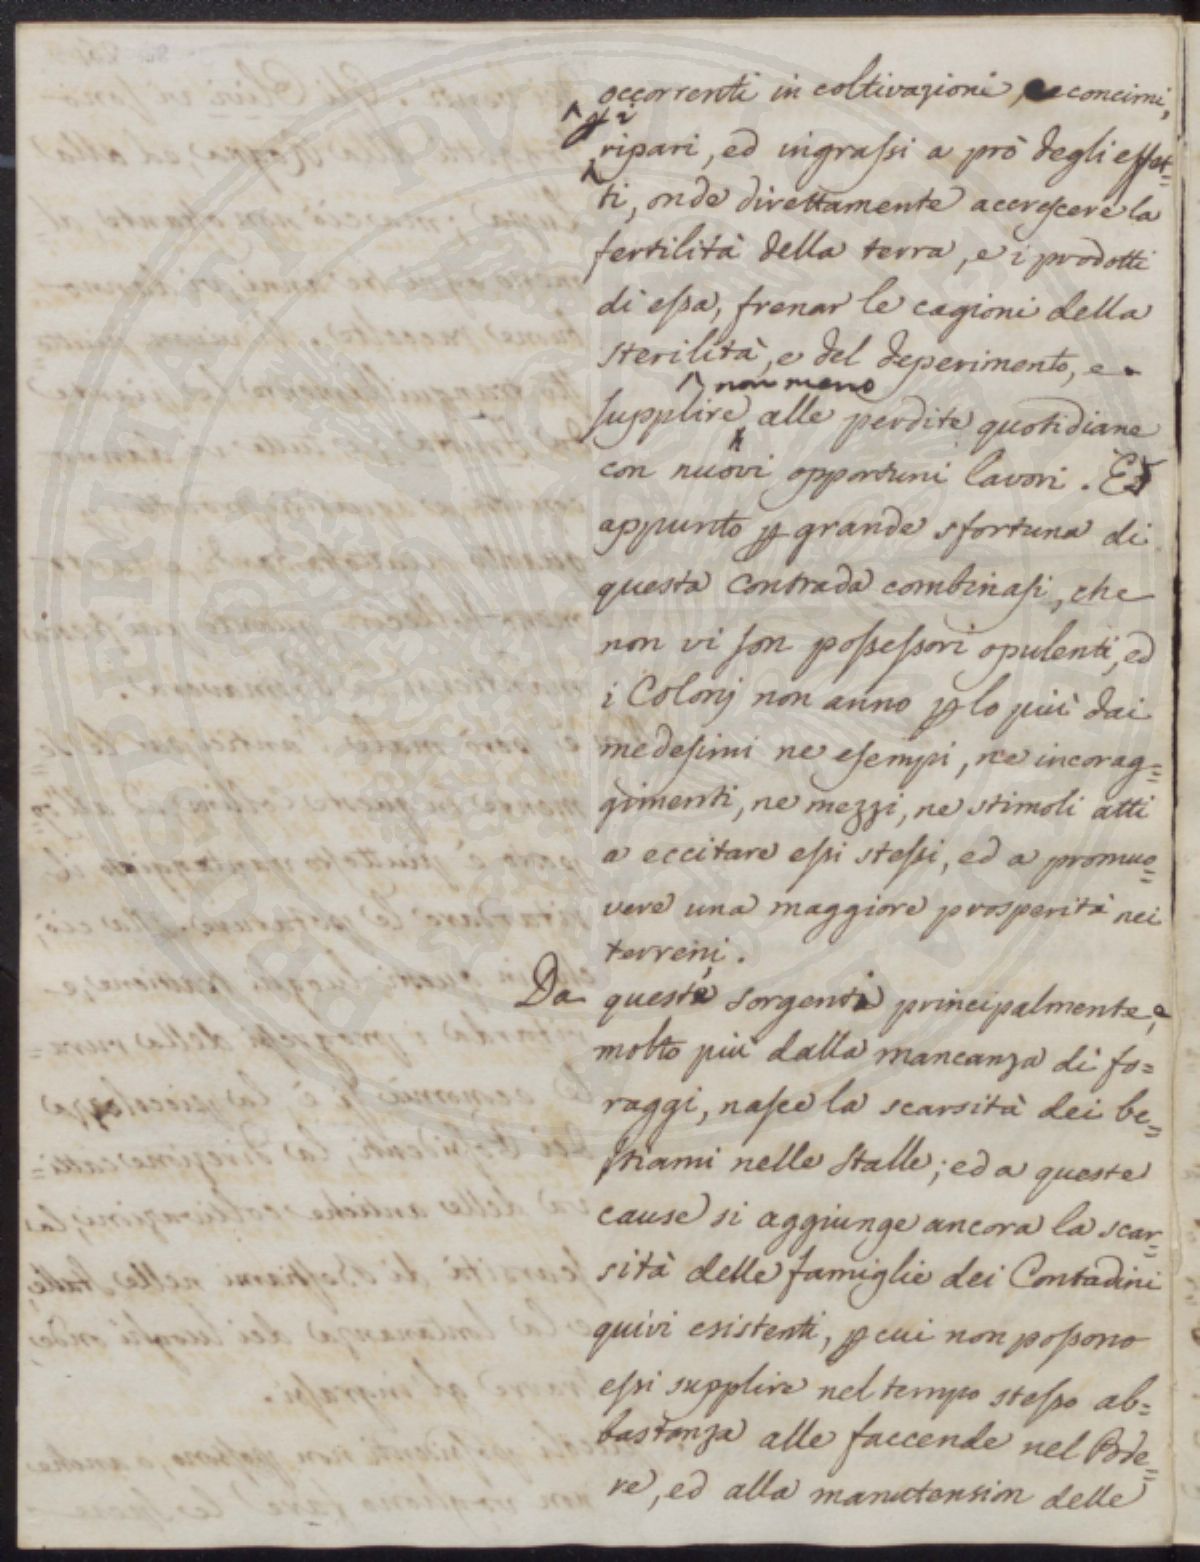 occorrenti in coltivazioni, e concimi,
gl'i
ripari, ed ingrassi a prò degli effet=
ti, onde direttamente accrescere la
fertilità della terra, e i prodotti
di essa, frenar le cagioni della
sterilità, e del deperimento, e
non meno
supplire alle perdite quotidiane
con nuovi opportuni lavori. Ed
appunto p grande sfortuna di
questa Contrada combinasi, che
non vi son possessori opulenti, ed
i Colonj non anno p lo più dai
medesimi ne esempi, ne incorag=
gimenti, ne mezzi, ne stimoli atti
a eccitare essi stessi, ed a promuo=
vere una maggiore prosperità nei
terreni.
Da queste sorgenti principalmente, e
molto più dalla mancanza di fo=
raggi, nasce la scarsità dei be=
stiami nelle Stalle; ed a queste
cause si aggiunge ancora la scar=
sità delle famiglie dei Contadini
quivi esistenti, p cui non possono
essi supplire nel tempo stesso ab=
bastanza alle faccende nel Pode=
re, ed alla manutension delle